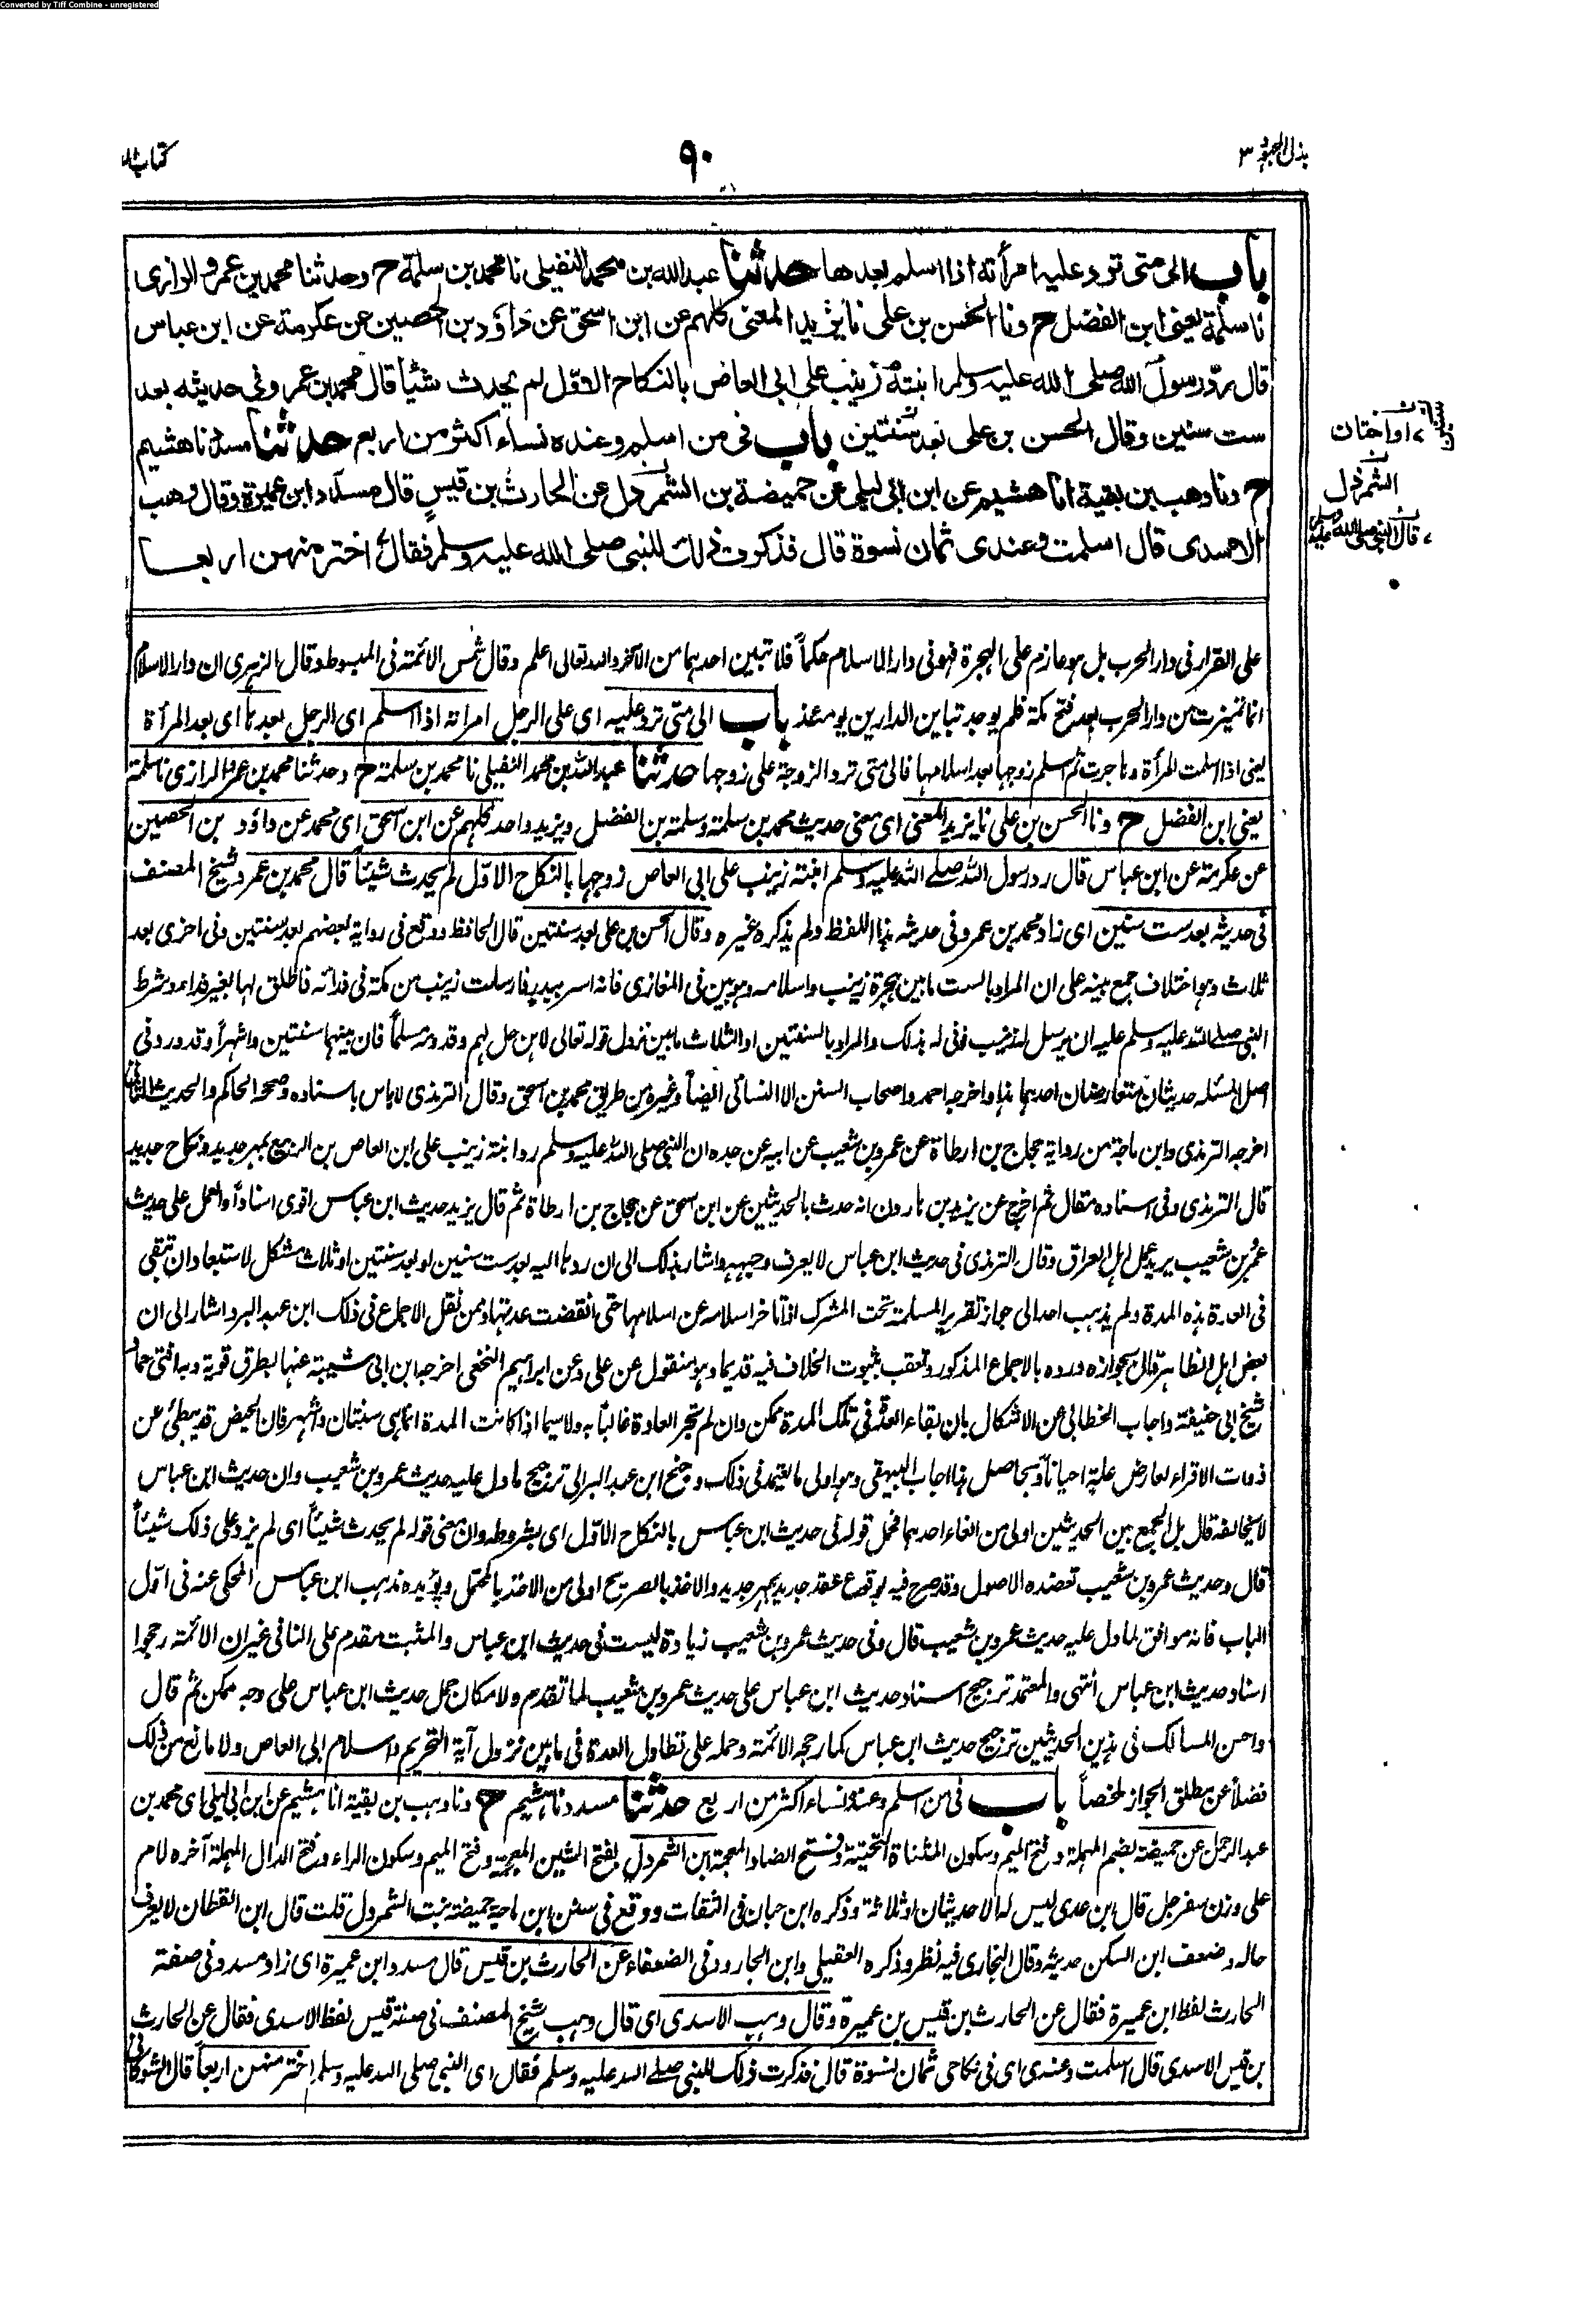 Converted by Tiff Combine - unregistered
بذل المجهود ٣
٩٠
كتاب
باب الى متى ترد عليه امرأته اذا اسلم بعدها حدثنا عبد الله بن محمد النفيلى نا محمد بن سلمة ح وحدثنا محمد بن عمرو الرازى
نا سلمة يعنى ابن الفضل ح ونا الحسن بن على نا يزيد المعنى كلهم عن ابن اسحق عن داؤد بن الحصين عن عكرمة عن ابن عباس
قال رد رسول الله صلى الله عليه وسلم ابنته زينب على ابى العاص بالنكاح الاول لم يحدث شيئا قال محمد بن عمرو فى حديثه بعد
ست سنين وقال الحسن بن على بعد سنتين باب فى من اسلم وعنده نساء اكثر من اربع حدثنا مسدد نا هشيم
ح ونا وهب بن بقية انا هشيم عن ابن ابى ليلى عن حميضة بن الشمردل عن الحارث بن قيس قال مسدد ابن عميرة وقال وهب
الاسدى قال اسلمت وعندى ثمان نسوة قال فذكرت ذلك للنبى صلى الله عليه وسلم فقال اختر منهن اربعا
او اختان
الشمرذل
قال النبى صلى الله عليه وسلم
على القرار فى دار الحرب بل هو عازم على الهجرة فهو فى دار الاسلام حكماً فلا تبين احدهما من الآخر والله تعالى اعلم وقال شمس الائمة فى المبسوط وقال الزهرى ان دار الاسلام
انما تميزت من دار الحرب بعد فتح مكة فلم يوجد تباين الدارين يومئذ باب الى متى ترد عليه اى على الرجل امرأته اذا اسلم اى الرجل بعدها اى بعد المرأة
يعنى اذا اسلمت المرأة وهاجرت ثم اسلم زوجها بعد اسلامها فالى متى ترد الزوجة على زوجها حدثنا عبد الله بن محمد النفيلى نا محمد بن سلمة ح وحدثنا محمد بن عمرو الرازى نا سلمة
يعنى ابن الفضل ح ونا الحسن بن على نا يزيد المعنى اى معنى حديث محمد بن سلمة وسلمة بن الفضل ويزيد واحد كلهم عن ابن اسحق اى محمد عن داؤد بن الحصين
عن عكرمة عن ابن عباس قال رد رسول الله صلى الله عليه وسلم ابنته زينب على ابى العاص زوجها بالنكاح الاول لم يحدث شيئاً قال محمد بن عمرو شيخ المصنف
فى حديثه بعد ست سنين اى زاد محمد بن عمرو فى حديثه هذا اللفظ ولم يذكره غيره وقال الحسن بن على بعد سنتين قال الحافظ ووقع فى رواية بعضهم بعد سنتين وفى اخرى بعد
ثلاث وهو اختلاف جمع بينه على ان المراد بالست ما بين هجرة زينب واسلامه وهو بين فى المغازى فانه اسر ببدر فارسلت زينب من مكة فى فدائه فاطلق لها بغير فداء وشرط
النبى صلى الله عليه وسلم عليه ان يرسل له زينب فوفى له بذلك والمراد بالسنتين او الثلاث ما بين نزول قوله تعالى لا هن حل لهم وقدومه مسلماً فان بينهما سنتين واشهراً وقد ورد فى
اصل المسئلة حديثان متعارضان احدهما هذا واخرجه احمد واصحاب السنن الا النسائى ايضاً وغيره من طريق محمد بن اسحق وقال الترمذى لا باس باسناده وصححه الحاكم والحديث الثانى
اخرجه الترمذى وابن ماجة من رواية حجاج بن ارطاة عن عمرو بن شعيب عن ابيه عن جده ان النبى صلى الله عليه وسلم رد ابنته زينب على ابى العاص بن الربيع بمهر جديد ونكاح جديد
قال الترمذى وفى اسناده مقال ثم اخرج عن يزيد بن هارون انه حدث بالحديثين عن ابن اسحق عن حجاج بن ارطاة ثم قال يزيد حديث ابن عباس اقوى اسناداً والعمل على حديث
عمرو بن شعيب يريد عمل اهل العراق وقال الترمذى فى حديث ابن عباس لا يعرف وجهه واشار بذلك الى ان ردها اليه بعد ست سنين او بعد سنتين او ثلاث مشكل لاستبعاد ان تبقى
فى العدة هذه المدة ولم يذهب احد الى جواز تقرير المسلمة تحت المشرك اذا تاخر اسلامه عن اسلامها حتى انقضت عدتها وممن نقل الاجماع فى ذلك ابن عبد البر واشار الى ان
بعض اهل الظاهر قال بجوازه ورده بالاجماع المذكور وتعقب بثبوت الخلاف فيه قديما وهو منقول عن على وعن ابراهيم النخعى اخرجه ابن ابى شيبة عنهما بطرق قوية وبه افتى حماد
شيخ ابى حنيفة واجاب الخطابى عن الاشكال بان بقاء العدة فى تلك المدة ممكن وان لم تجر العادة غالباً به ولا سيما اذا كانت المدة انما هى سنتان واشهر فان الحيض قد يبطئ عن
ذوات الاقراء لعارض علة احياناً وبحاصل هذا اجاب البيهقى وهو اولى ما يعتمد فى ذلك وجنح ابن عبد البر الى ترجيح ما دل عليه حديث عمرو بن شعيب وان حديث ابن عباس
لا يخالفه قال بل الجمع بين الحديثين اولى من الغاء احدهما فحمل قوله فى حديث ابن عباس بالنكاح الاول اى بشروطه وان معنى قوله لم يحدث شيئاً اى لم يزد على ذلك شيئاً
قال وحديث عمرو بن شعيب تعضده الاصول وقد صرح فيه بوقوع عقد جديد بمهر جديد والاخذ بالصريح اولى من الاخذ بالمحتمل ويؤيده مذهب ابن عباس المحكى عنه فى اول
الباب فانه موافق لما دل عليه حديث عمرو بن شعيب قال وفى حديث عمرو بن شعيب زيادة ليست فى حديث ابن عباس والمثبت مقدم على النافى غير ان الائمة رجحوا
اسناد حديث ابن عباس انتهى والمعتمد ترجيح اسناد حديث ابن عباس على حديث عمرو بن شعيب لما تقدم ولامكان حمل حديث ابن عباس على وجه ممكن ثم قال
واحسن المسالك فى هذين الحديثين ترجيح حديث ابن عباس كما رجحه الائمة وحمله على تطاول العدة فى ما بين نزول آية التحريم واسلام ابى العاص ولا مانع من ذلك
فضلاً عن مطلق الجواز ملخصاً باب فى من اسلم وعنده نساء اكثر من اربع حدثنا مسدد نا هشيم ح ونا وهب بن بقية انا هشيم عن ابن ابى ليلى اى محمد بن
عبد الرحمن عن حميضة بضم المهملة وفتح الميم وسكون المثناة التحتية وفتح الضاد المعجمة ابن الشمردل بفتح الشين المعجمة وفتح الميم وسكون الراء وفتح الدال المهملة آخره لام
على وزن سفرجل قال ابن عدى ليس له الا حديثان او ثلاثة وذكره ابن حبان فى الثقات ووقع فى سنن ابن ماجه حميضة بنت الشمردل قلت قال ابن القطان لا يعرف
حاله وضعف ابن السكن حديثه وقال البخارى فيه نظر وذكره العقيلى وابن الجارود فى الضعفاء عن الحارث بن قيس قال مسدد ابن عميرة اى زاد مسدد فى صفة
الحارث لفظ ابن عميرة فقال عن الحارث بن قيس بن عميرة وقال وهب الاسدى اى قال وهب شيخ المصنف فى صفة قيس لفظ الاسدى فقال عن الحارث
بن قيس الاسدى قال اسلمت وعندى اى فى نكاحى ثمان نسوة قال فذكرت ذلك للنبى صلى الله عليه وسلم فقال اى النبى صلى الله عليه وسلم اختر منهن اربعاً قال الشوكانى